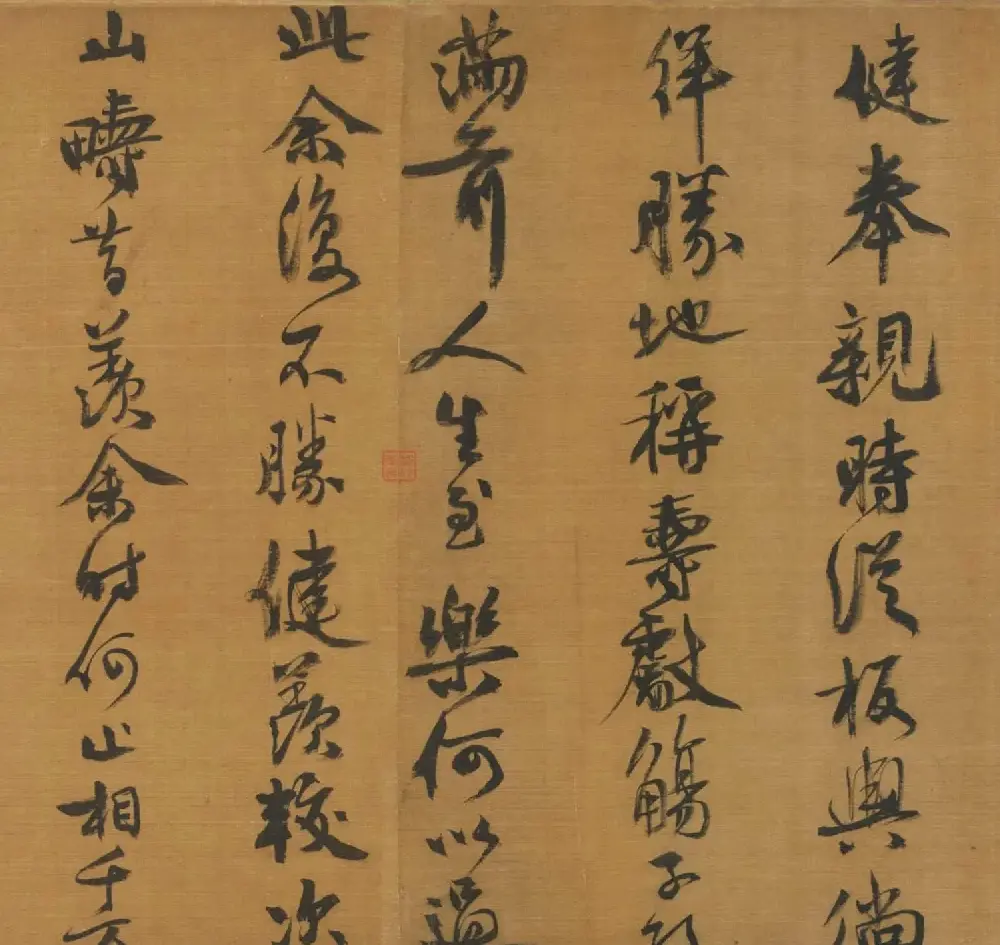 健奉親時從板輿倘
佯勝地稱壽獻觴子
滿前人生至樂何以過
此余復不勝健羨較次
山疇昔羨余時何止相千